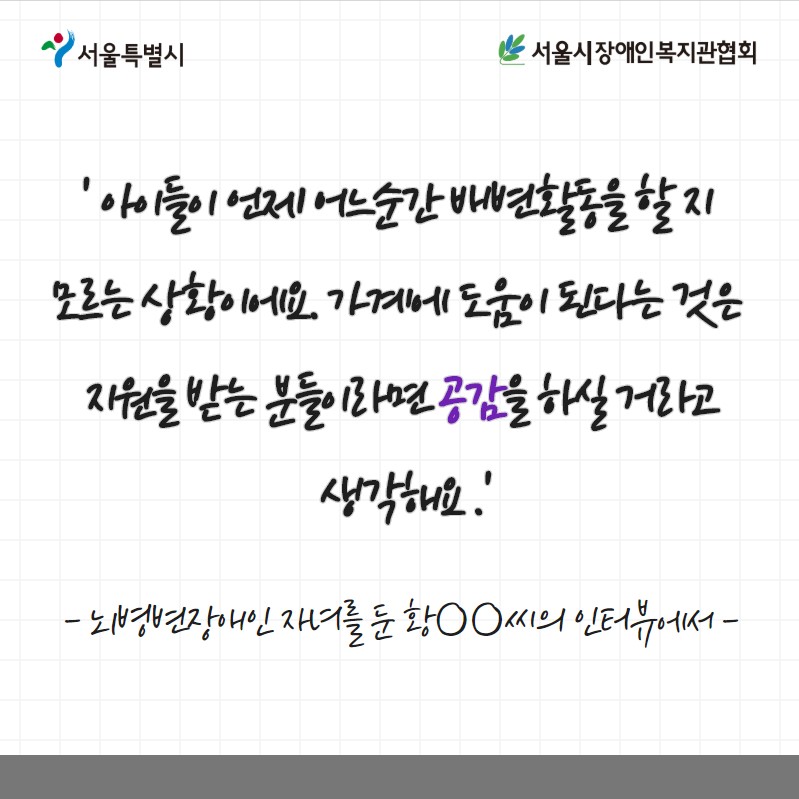 서울특별시
서울시장애인복지관협회
' 아이들이 언제 어느순간 배변활동을 할 지
모르는 상황이에요. 가계에 도움이 된다는 것은
지원을 받는 분들이라면 공감을 하실 거라고
생각해요.'
- 뇌병변장애인 자녀를 둔 황○○씨의 인터뷰에서 -